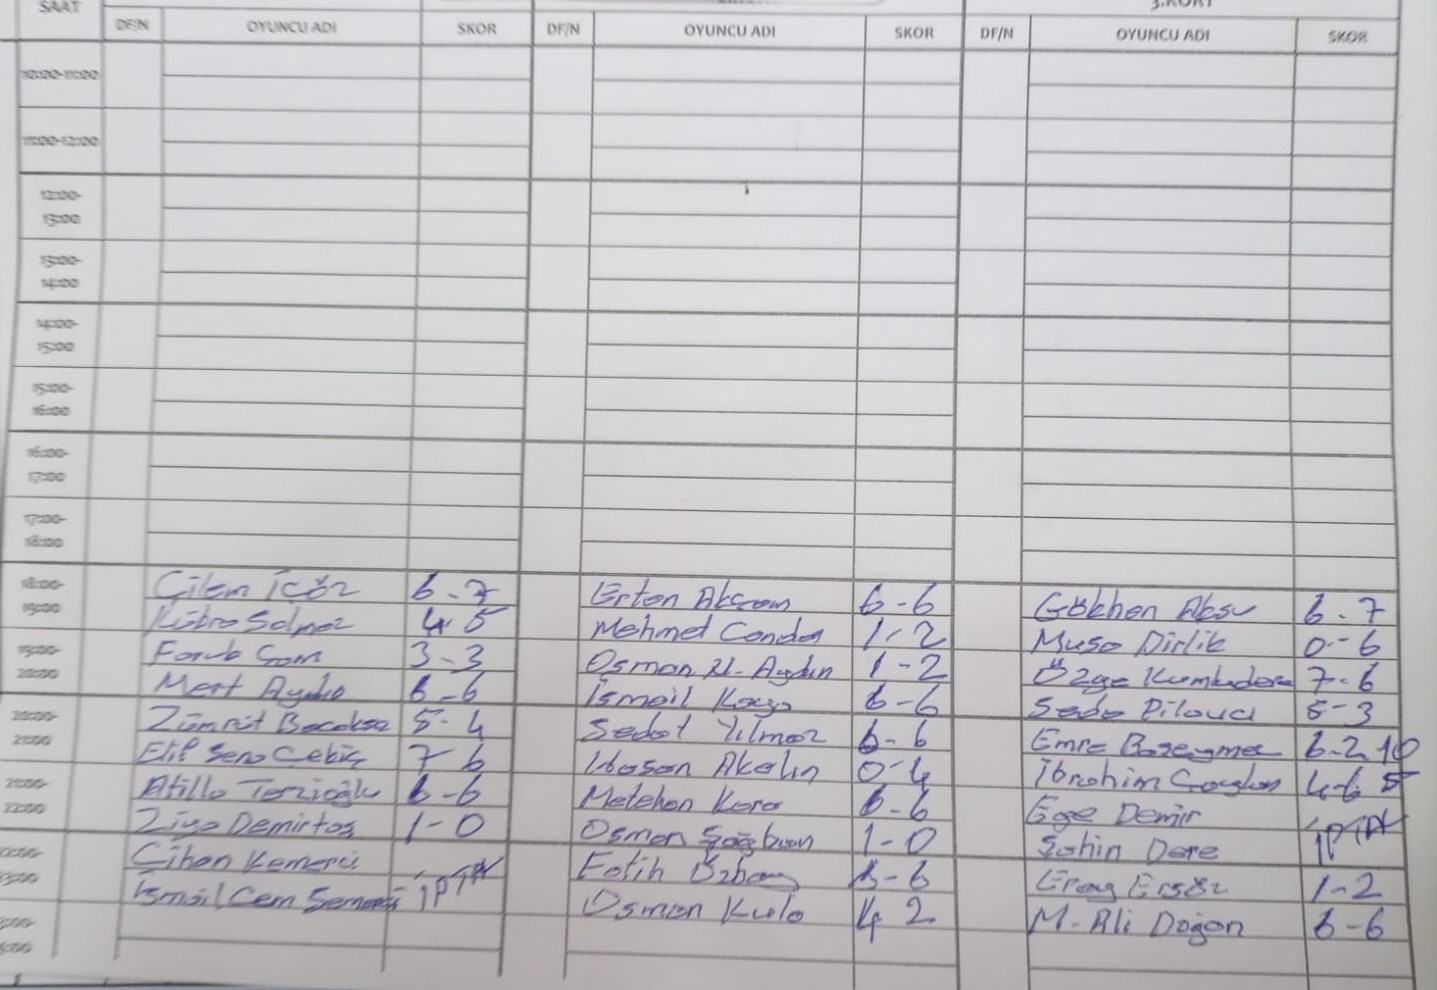 SAAT
3.KORT
DF/N OYUNCU ADI SKOR DF/N OYUNCU ADI SKOR DF/N OYUNCU ADI SKOR
10:00-11:00
11:00-12:00
12:00-
13:00
13:00-
14:00
14:00-
15:00
15:00-
16:00
16:00-
17:00
17:00-
18:00
18:00- Çilem İçöz 6-7 Ertan 6-6 Gökhan Aksu 6-7
19:00 Kübra Solmaz 4-5 Mehmet Candan 1-2 Musa Dirlik 0-6
19:00- Faruk Cam 3-3 Osman N. Aydın 1-2 Özge 7-6
20:00 Mert 6-6 İsmail Kaya 6-6 Seda 5-3
20:00- Zümrüt 5-4 Sedat Yılmaz 6-6 Emre 6-2 10
21:00 Elif Sena Çebiç 7-6 Hasan Akalın 0-4 İbrahim 4-6 5
21:00- Atilla Terzioğlu 6-6 Melehan Kara 6-6 Ege Demir
22:00 Ziya Demirtaş 1-0 Osman 1-0 Şahin Dere İPTAL
22:00- Cihan Kemerci Fatih 3-6 Eray Ersöz 1-2
23:00 İsmail Cem İPTAL Osman Kula 4 2 M. Ali Doğan 6-6